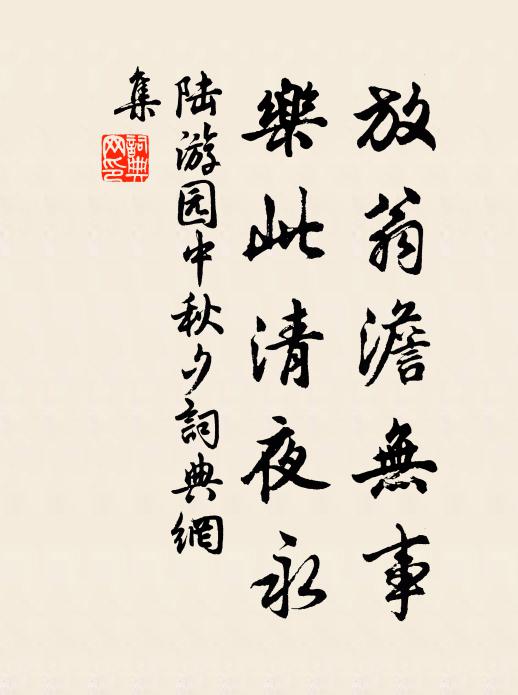 放翁澹無事
樂此清夜永
陆游园中秋夕詞典網
集
詞典網印